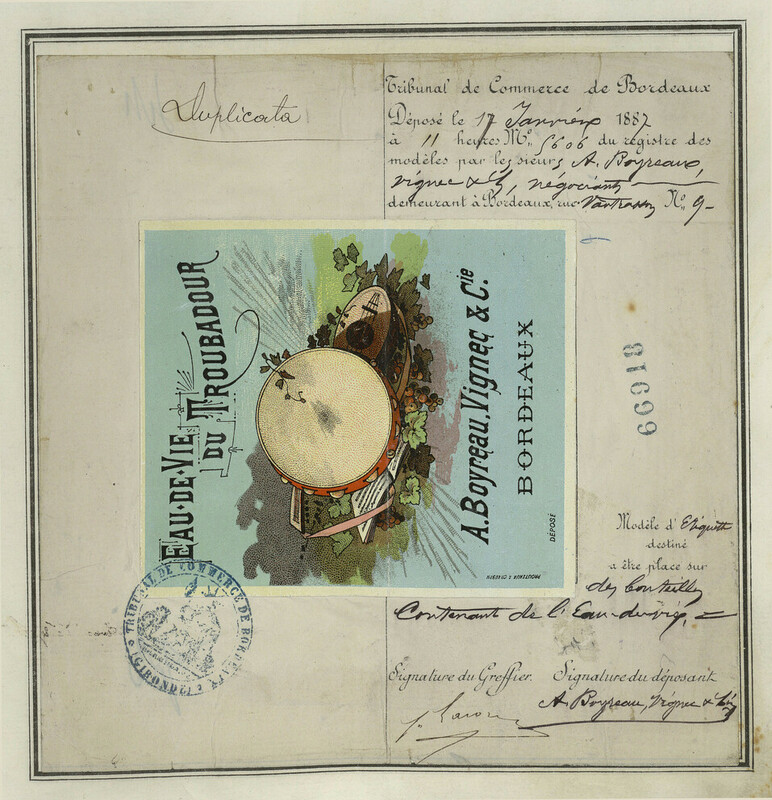 Duplicata
Tribunal de Commerce de Bordeaux
Déposé le 17 Janvier 1887
à 11 heures N° 5606 du registre des
modèles par les sieurs A. Boyreau,
Vignec & Cie, négociants
demeurant à Bordeaux, rue N° 9
EAU-DE-VIE
DU TROUBADOUR
A. Boyreau, Vignec & Cie.
BORDEAUX
DÉPOSÉ
66918
Modèle d'Etiquette
destiné
a être placé sur
des bouteilles
Contenant de l'Eau-de-vie
TRIBUNAL DE COMMERCE DE BORDEAUX
(GIRONDE)
Signature du Greffier. Signature du déposant
A. Boyreau, Vignec & Cie